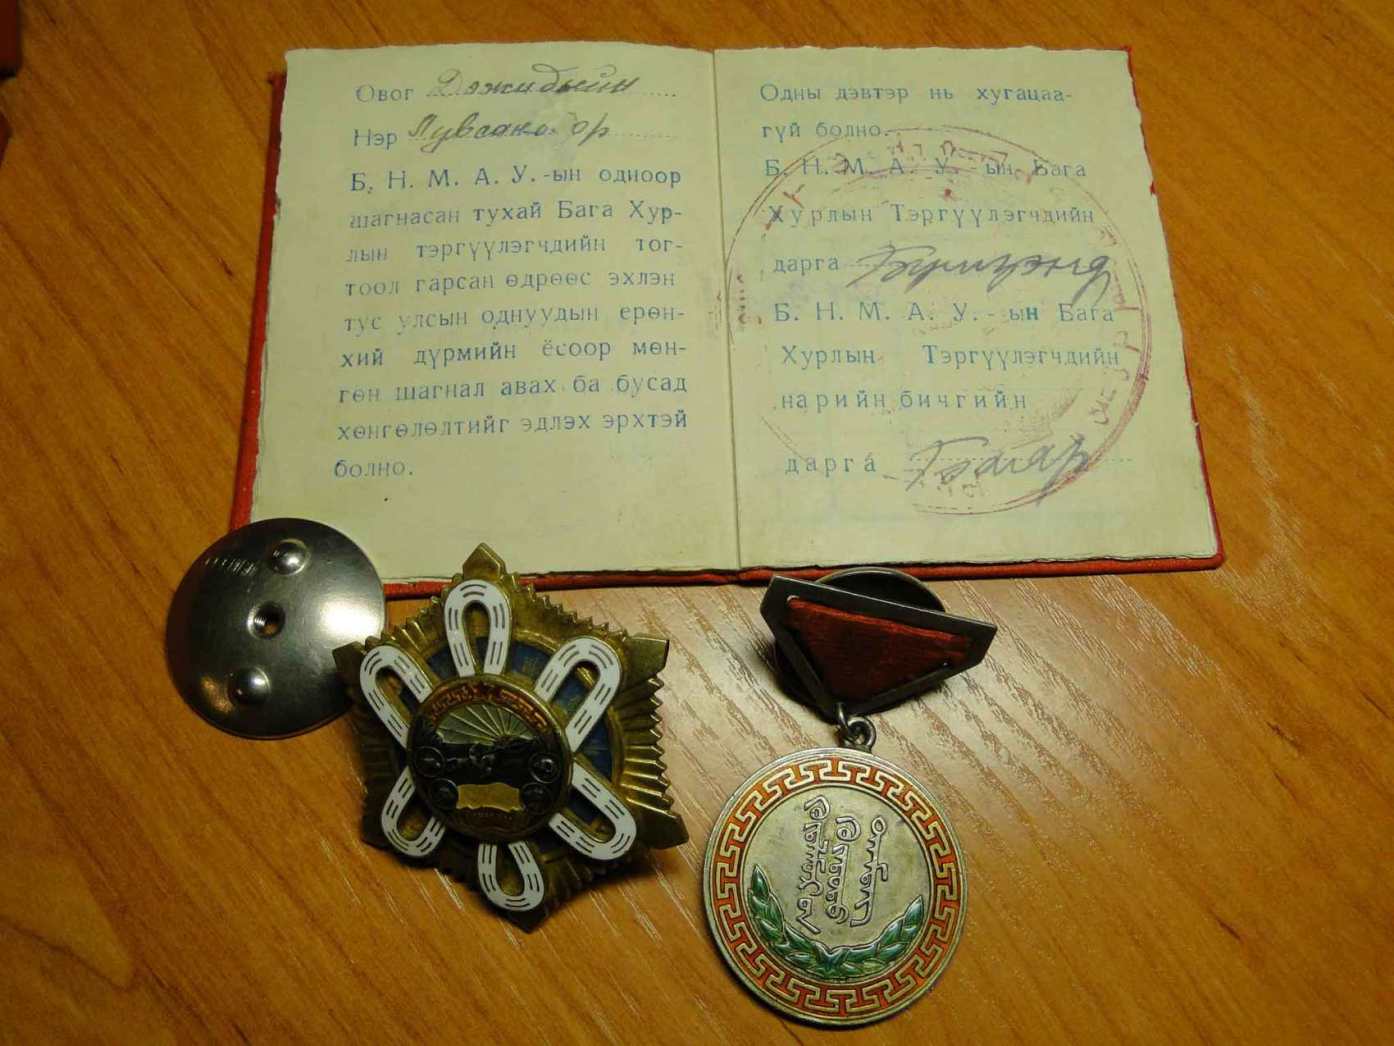 Овог Дожидыйн
Нэр
Б. Н. М. А. У.-ын одноор
шагнасан тухай Бага Хур-
лын тэргүүлэгчдийн тог-
тоол гарсан өдрөөс эхлэн
тус улсын однуудын ерөн-
хий дүрмийн ёсоор мөн-
гөн шагнал авах ба бусад
хөнгөлөлтийг эдлэх эрхтэй
болно.
Одны дэвтэр нь хугацаа-
гүй болно.
Б. Н. М. А. У. -ын Бага
Хурлын Тэргүүлэгчдийн
дарга Бумцэнд
Б. Н. М. А. У. - ын Бага
Хурлын Тэргүүлэгчдийн
нарийн бичгийн
дарга